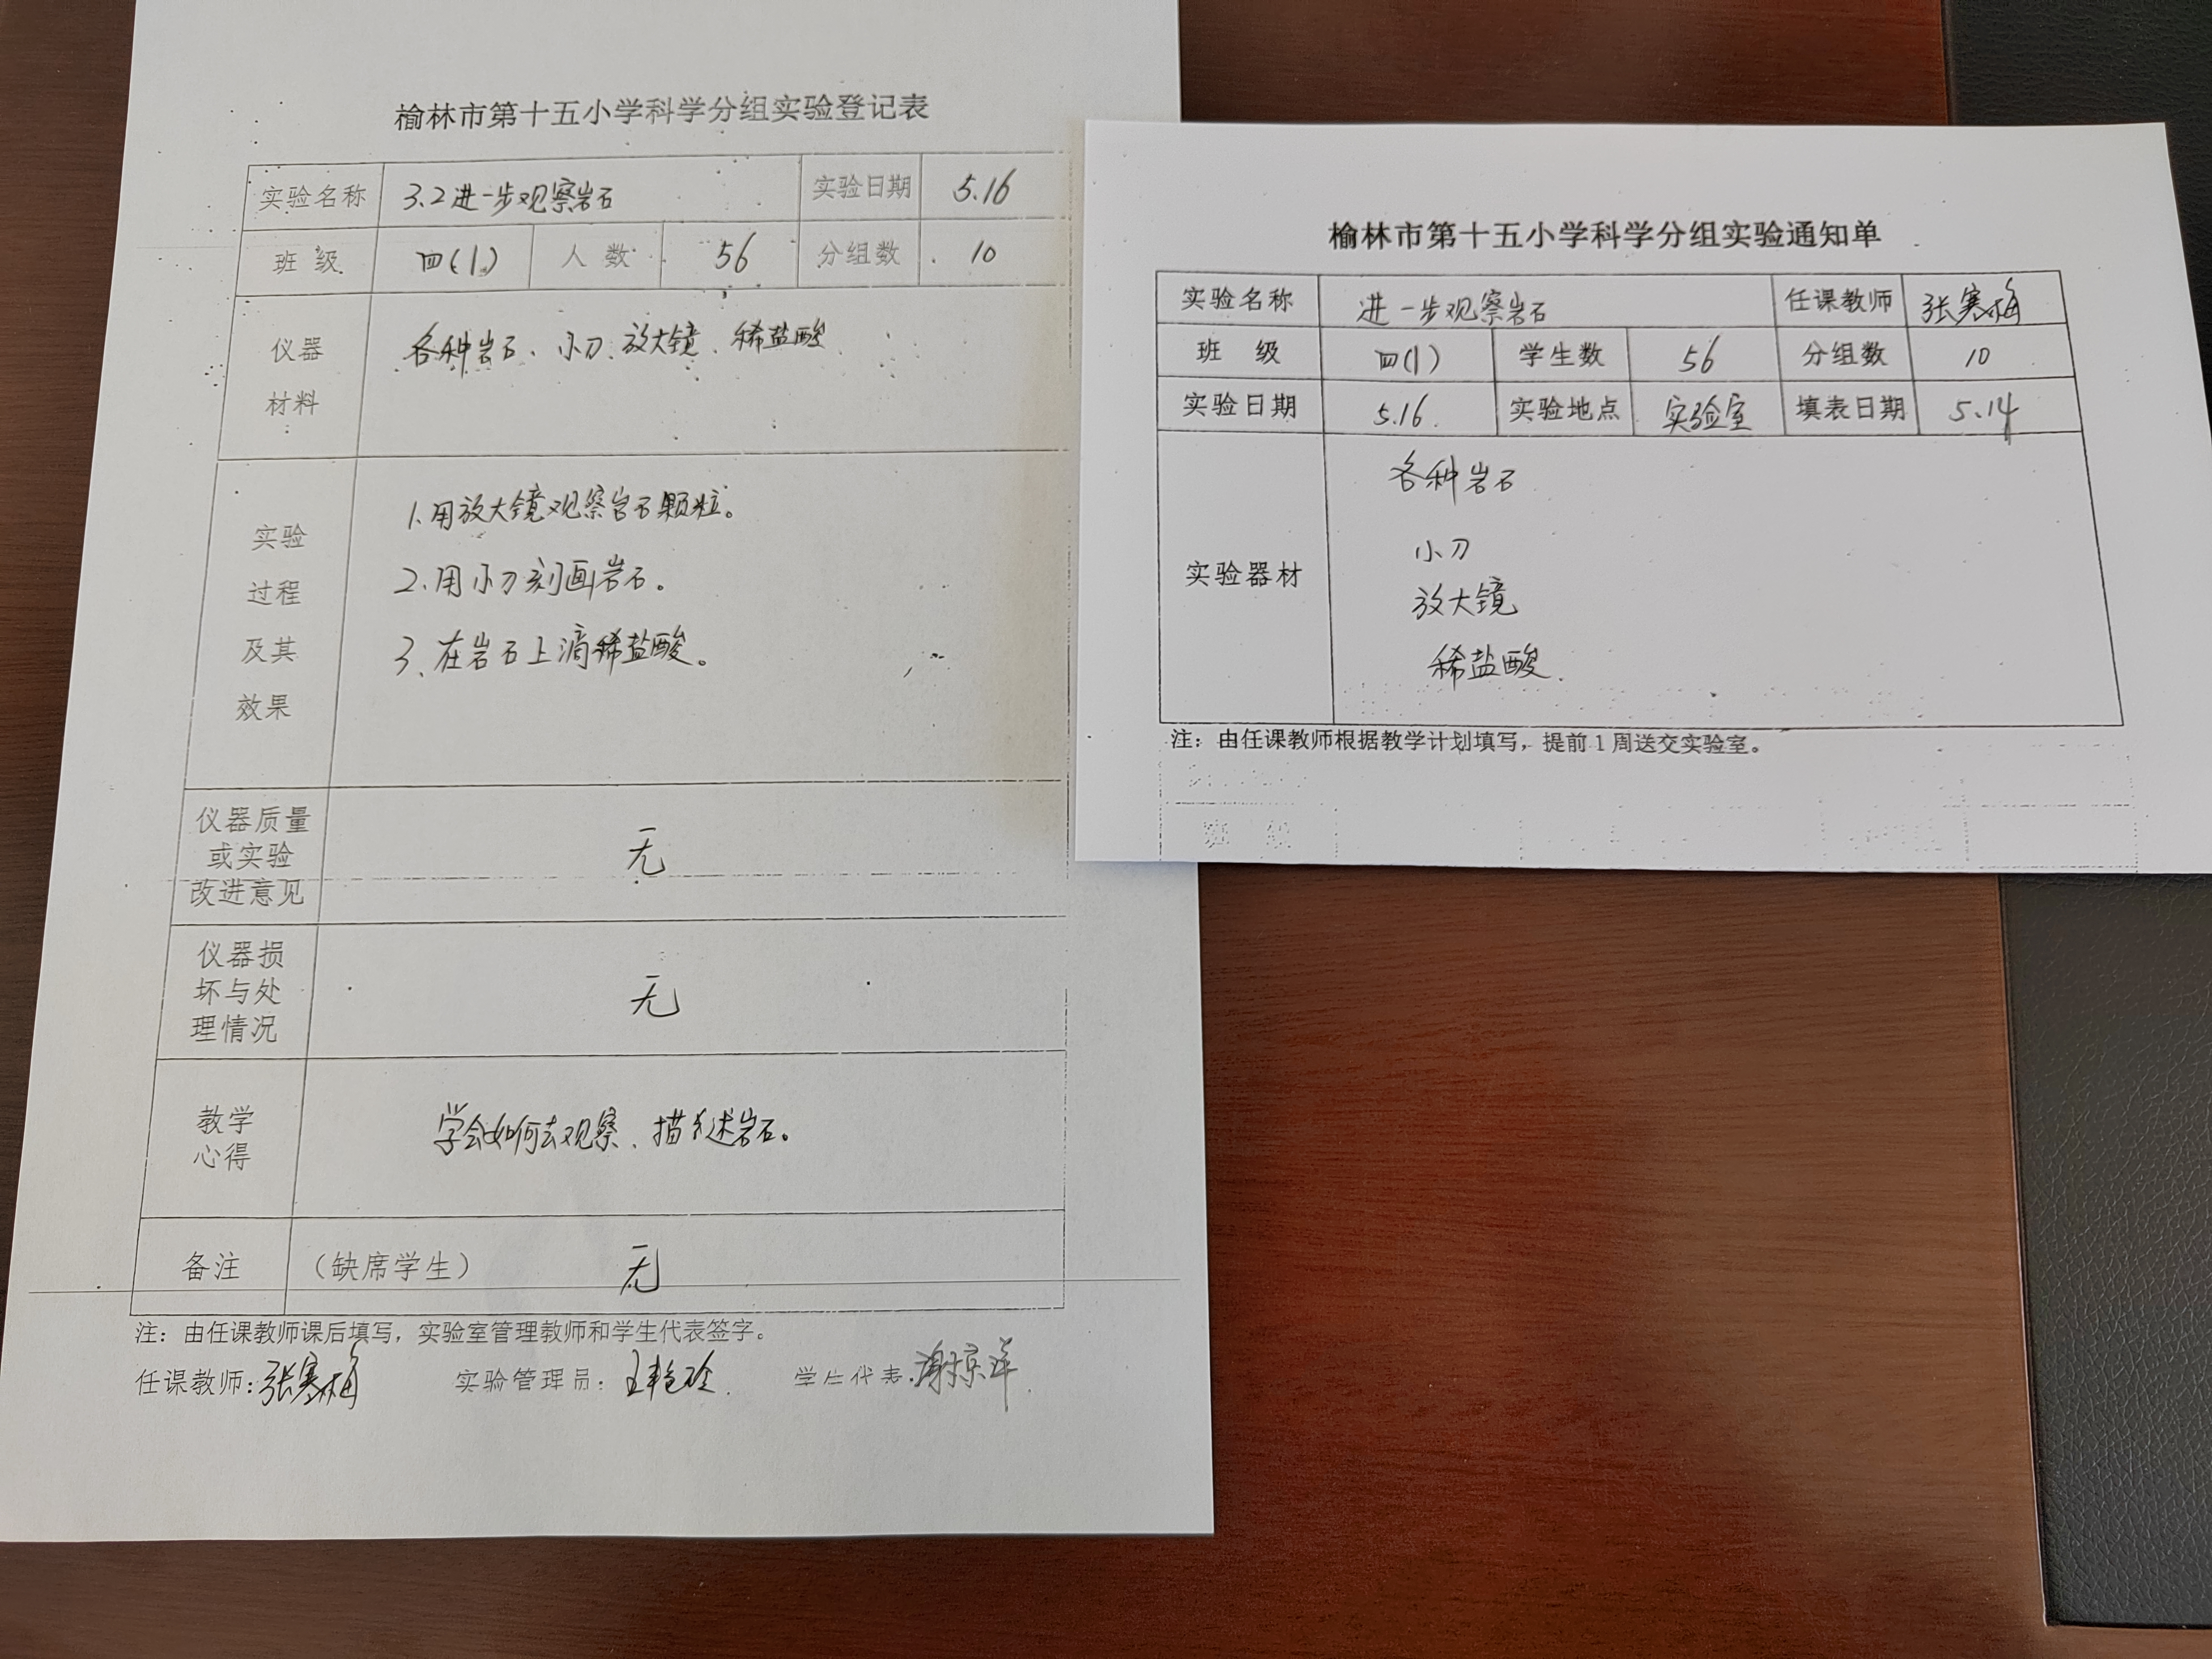 榆林市第十五小学科学分组实验登记表
实验名称 3.2进一步观察岩石 实验日期 5.16
班 级 四(1) 人 数 56 分组数 10
仪器
材料
各种岩石、小刀、放大镜、稀盐酸
实验
过程
及其
效果
1.用放大镜观察岩石颗粒。
2.用小刀刻画岩石。
3.在岩石上滴稀盐酸。
仪器质量
或实验
改进意见
无
仪器损
坏与处
理情况
无
教学
心得
学会如何去观察、描述岩石。
备注 （缺席学生） 无
注：由任课教师课后填写，实验室管理教师和学生代表签字。
任课教师:张寒梅 实验管理员：王艳玲 学生代表:
榆林市第十五小学科学分组实验通知单
实验名称 进一步观察岩石 任课教师 张寒梅
班 级 四(1) 学生数 56 分组数 10
实验日期 5.16. 实验地点 实验室 填表日期 5.14
实验器材
各种岩石
小刀
放大镜
稀盐酸.
注：由任课教师根据教学计划填写，提前1周送交实验室。
班 级